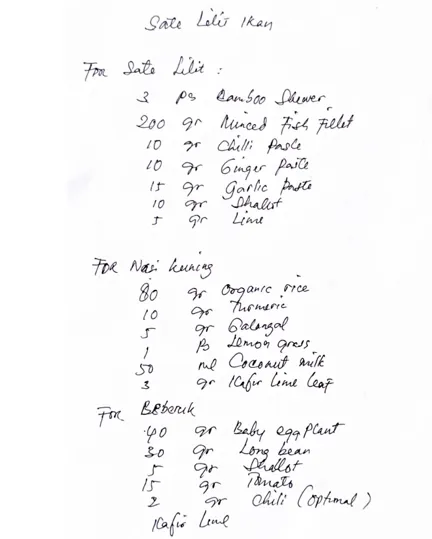 Sate Lilit Ikan
For Sate Lilit :
3 ps Bamboo Skewer
200 gr Minced Fish Fillet
10 gr Chilli paste
10 gr Ginger paste
15 gr Garlic paste
10 gr Shalot
5 gr Lime
For Nasi kuning
80 gr Organic rice
10 gr Turmeric
5 gr Galangal
1 Ps Lemon grass
50 ml Coconut milk
3 gr Kafir Lime Leaf
For Beberuk
40 gr Baby eggplant
30 gr Long bean
5 gr Shallot
15 gr Tomato
2 gr Chili (optimal)
Kafir Lime